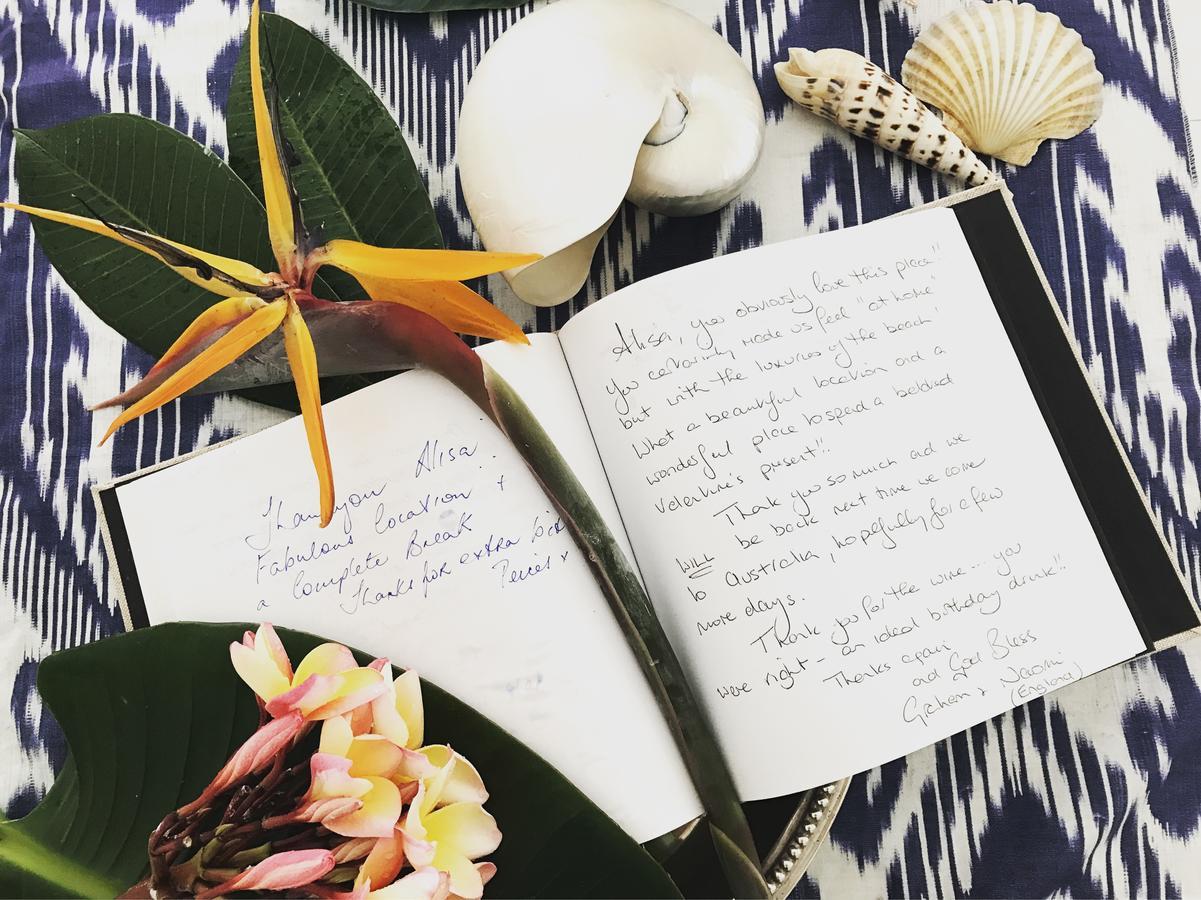 Thankyou Alisa
Fabulous location +
a complete Break
Thanks for extra
x
Alisa, you obviously love this place!!
You certainly made us feel "at home"
but with the luxuries of the beach!
What a beautiful location and a
wonderful place to spend a belated
Valentine's present!!
Thank you so much and we
WILL be back next time we come
to Australia, hopefully for a few
more days.
Thank you for the wine... you
were right - an ideal birthday drink!!
Thanks again
and God Bless
Graham & Naomi
(England)